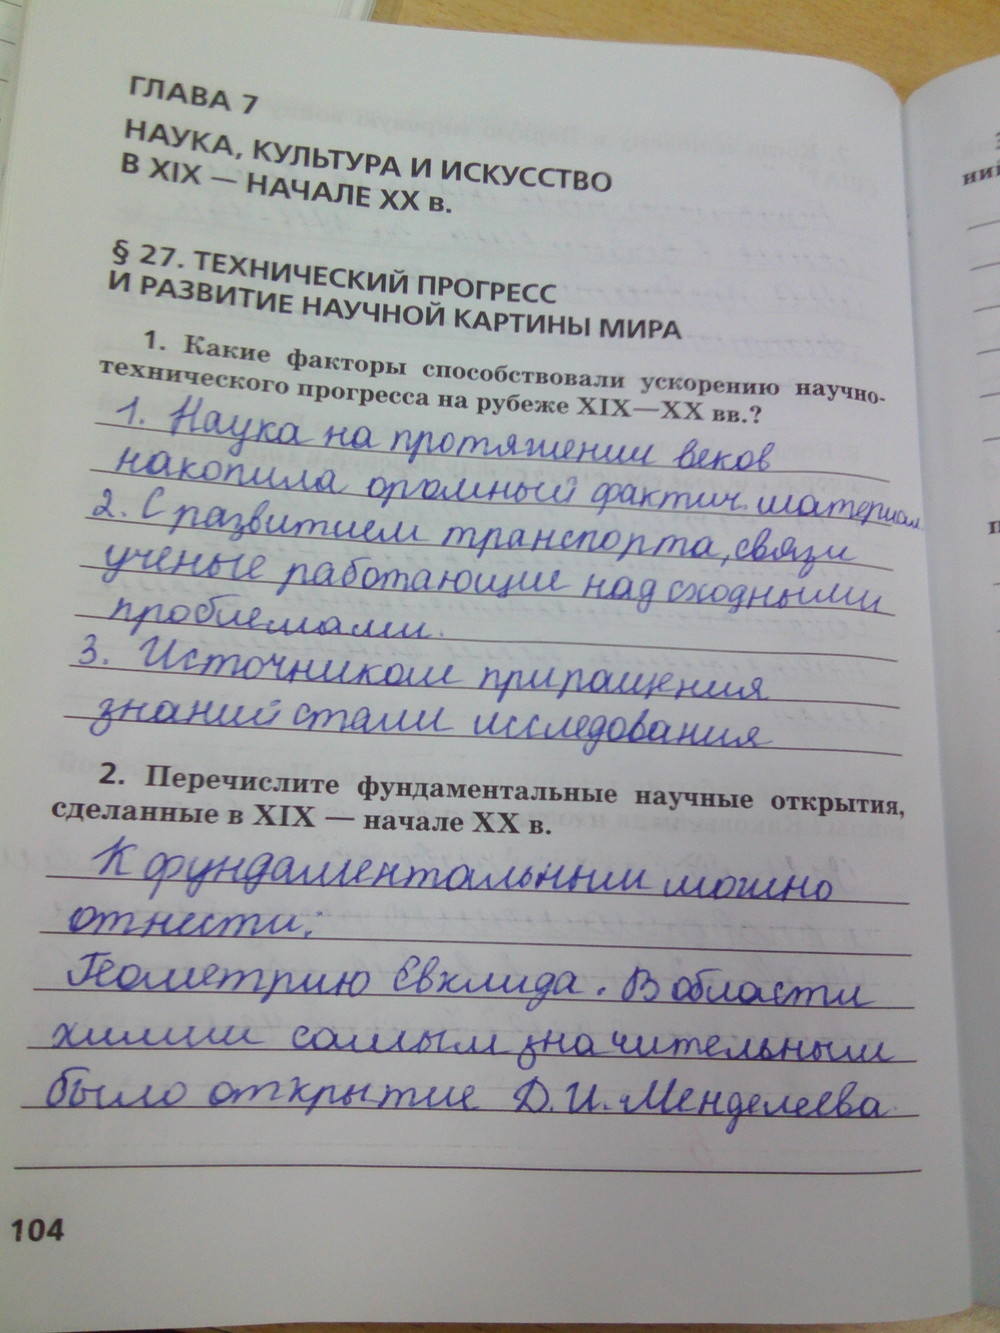 ГЛАВА 7
НАУКА, КУЛЬТУРА И ИСКУССТВО
В XIX — НАЧАЛЕ XX в.
§ 27. ТЕХНИЧЕСКИЙ ПРОГРЕСС
И РАЗВИТИЕ НАУЧНОЙ КАРТИНЫ МИРА
1. Какие факторы способствовали ускорению научно-
технического прогресса на рубеже XIX—XX вв.?
1. Наука на протяжении веков
накопила огромный фактич. материал
2. С развитием транспорта, связи
ученые работающие над сходными
проблемами.
3. Источником приращения
знаний стали исследования
2. Перечислите фундаментальные научные открытия,
сделанные в XIX — начале XX в.
К фундаментальным можно
отнести:
Геометрию Евклида. В области
химии самым значительным
было открытие Д.И. Менделеева.
104
ни